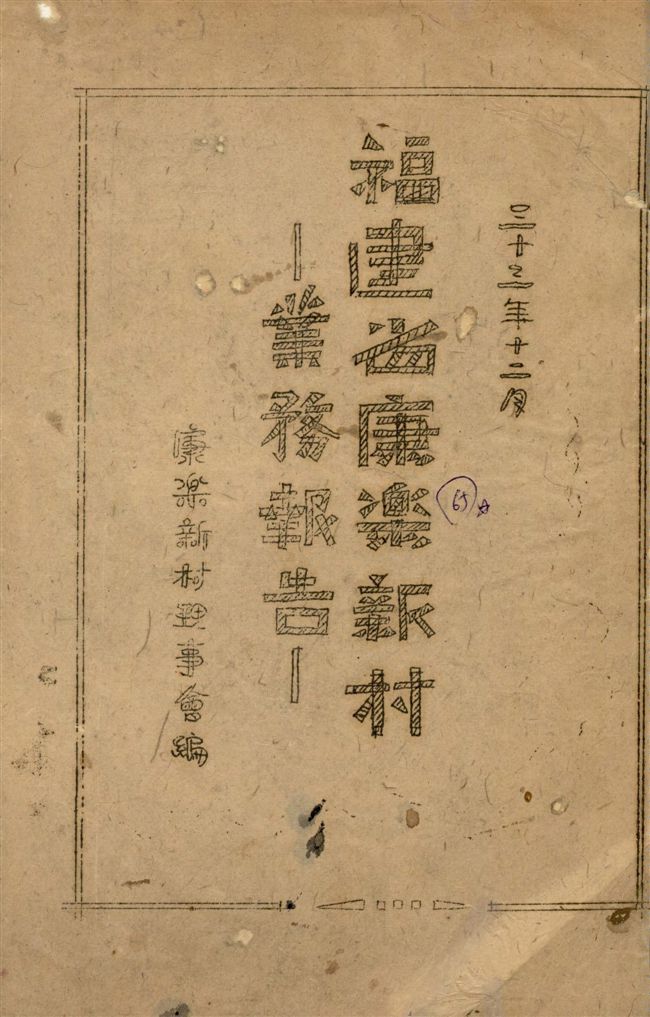 三十三年十二月
福建省康樂新村
—業務報告—
康樂新村理事會編
65